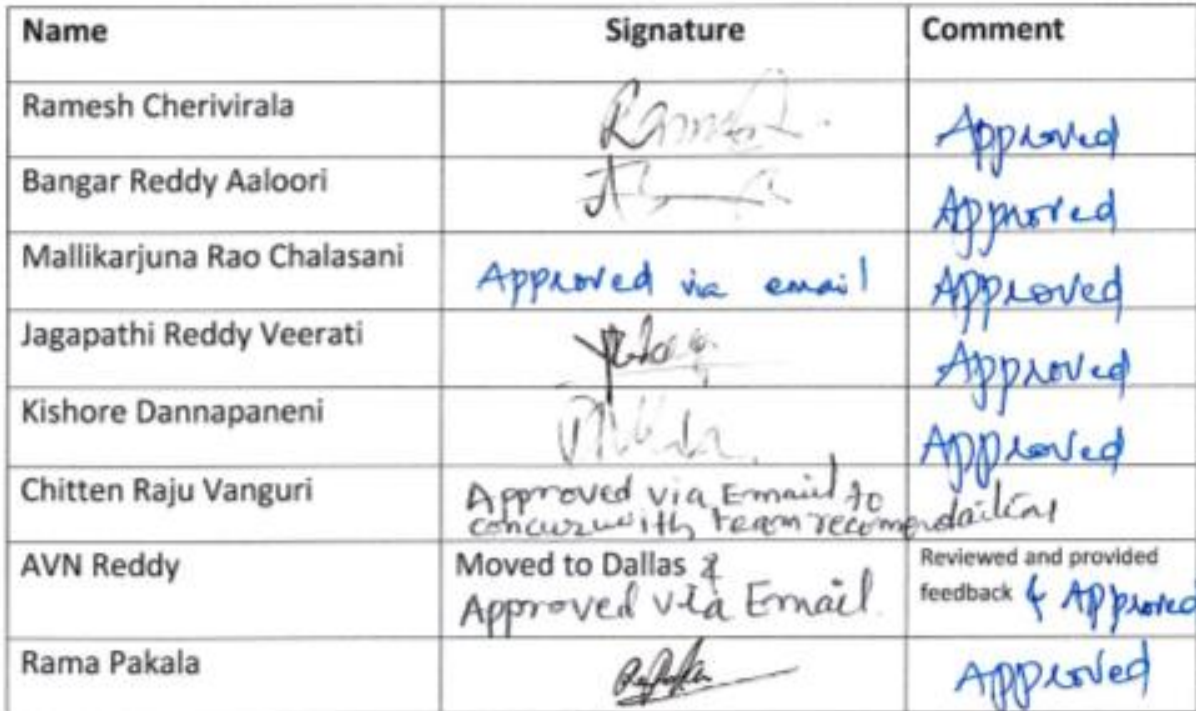 Name Signature Comment
Ramesh Cherivirala Approved
Bangar Reddy Aaloori Approved
Mallikarjuna Rao Chalasani Approved via email Approved
Jagapathi Reddy Veerati Approved
Kishore Dannapaneni Approved
Chitten Raju Vanguri Approved via Email to
concur with team recomendations
AVN Reddy Moved to Dallas & Reviewed and provided
Approved via Email. feedback & Approved
Rama Pakala Approved